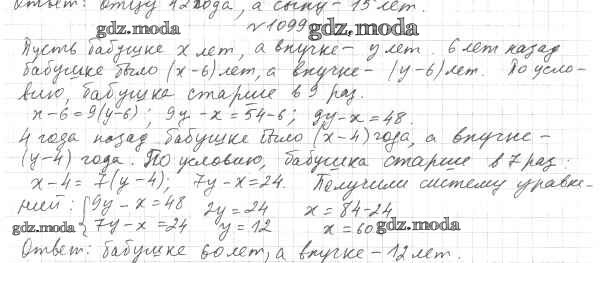 Ответ: отцу 42 года, а сыну - 15 лет.
gdz.moda №1099 gdz.moda
Пусть бабушке x лет, а внучке - y лет. 6 лет назад
бабушке было (x-6) лет, а внучке - (y-6) лет. По усло-
вию, бабушка старше в 9 раз.
x-6=9(y-6); 9y-x=54-6; 9y-x=48.
4 года назад бабушке было (x-4) года, а внучке -
(y-4) года. По условию, бабушка старше в 7 раз:
x-4=7(y-4); 7y-x=24. Получили систему уравне-
ний: {9y-x=48 2y=24 x=84-24
gdz.moda 7y-x=24 y=12 x=60 gdz.moda
Ответ: бабушке 60 лет, а внучке - 12 лет.